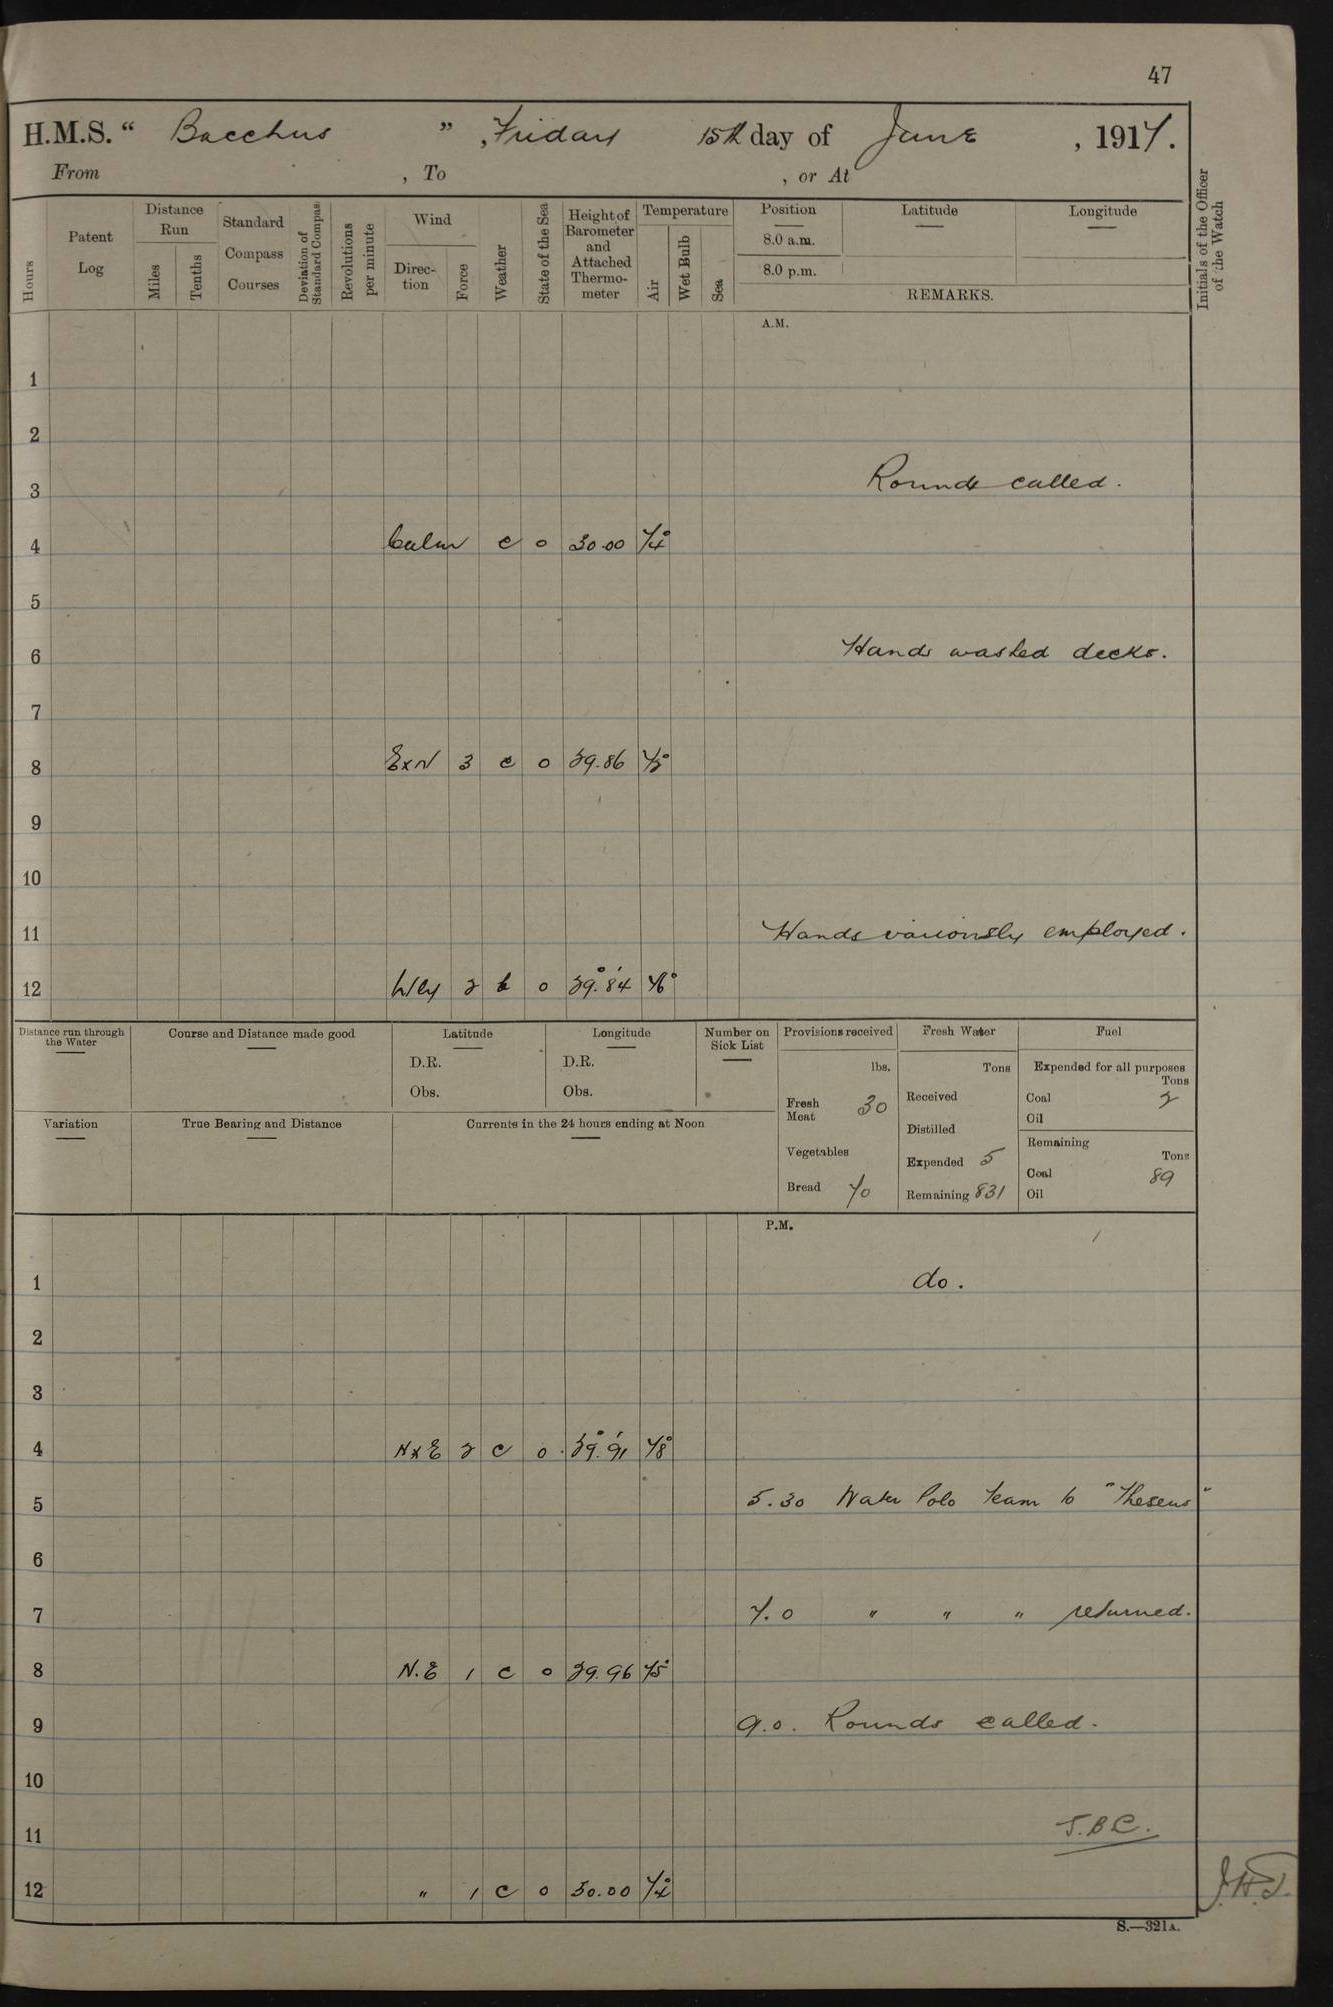 47
H.M.S. “ Bacchus ” , Friday 15th day of June , 1917.
From , To , or At
Hours
Patent Log
Distance Run
Miles
Tenths
Standard Compass Courses
Deviation of Standard Compass
Revolutions per minute
Wind
Direction
Force
Weather
State of the Sea
Height of Barometer and Attached Thermometer
Temperature
Air
Wet Bulb
Sea
Position Latitude Longitude
8.0 a.m.
8.0 p.m.
REMARKS.
Initials of the Officer of the Watch
A.M.
1
2
3 Rounds called.
4 Calm c 0 30.00 74°
5
6 Hands washed decks.
7
8 ExN 3 c 0 29.86 75°
9
10
11 Hands variously employed.
12 Wly 2 b 0 29.84 76°
Distance run through the Water
Course and Distance made good
Latitude
D.R.
Obs.
Longitude
D.R.
Obs.
Number on Sick List
Provisions received
lbs.
Fresh Meat 30
Vegetables
Bread 70
Fresh Water
Tons
Received
Distilled
Expended 5
Remaining 831
Fuel
Expended for all purposes
Tons
Coal 2
Oil
Remaining
Tons
Coal 89
Oil
Variation
True Bearing and Distance
Currents in the 24 hours ending at Noon
P.M.
1 do.
2
3
4 NxE 2 c 0 29.91 78°
5 5.30 Water Polo Team to "Theseus"
6
7 7.0 " " " returned.
8 N.E 1 c 0 29.96 75°
9 9.0. Rounds called.
10
11 J.B.C.
12 " 1 c 0 30.00 74°
S.—321A.